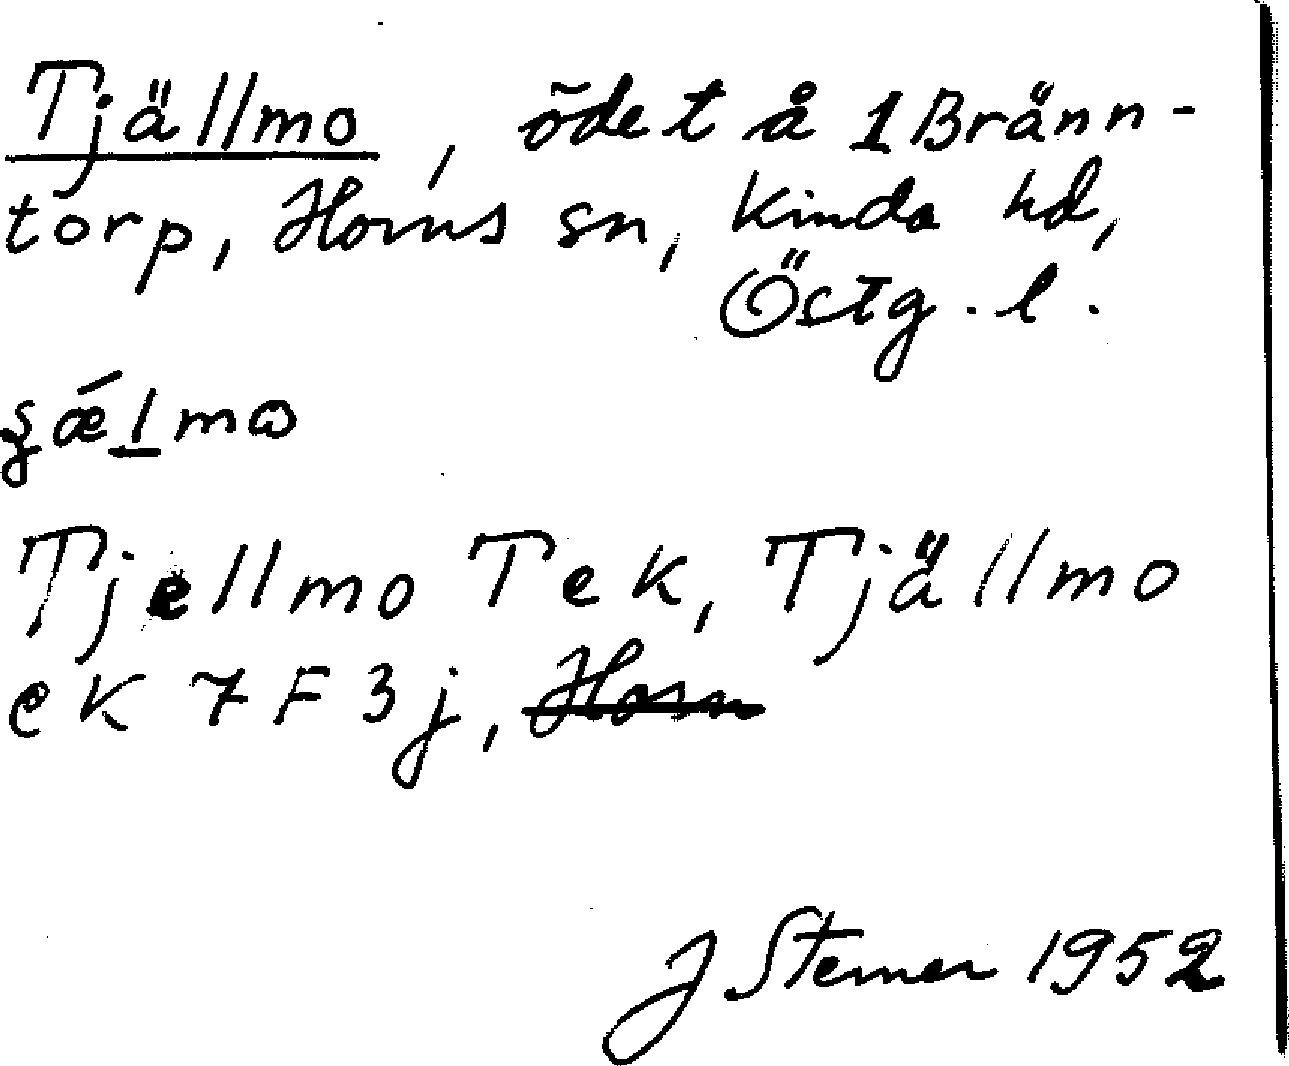 Tjällmo, ödet å 1 Bränn-
torp, Horns sn, Kinda hd,
Östg. l.
Tjellmo Tek, Tjällmo
ek 7 F 3j, Horn
J Sterner 1952